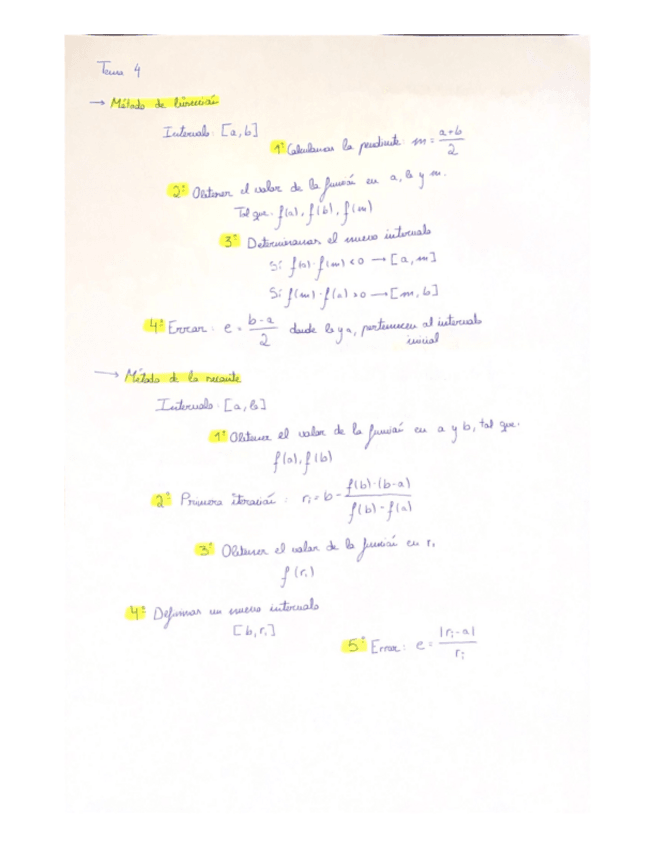 Tema 4
→ Método de bisección
Intervalo: [a,b]
1º Calculamos la pendiente: m = a+b / 2
2º Obtener el valor de la función en a, b y m.
Tal que: f(a), f(b), f(m)
3º Determinamos el nuevo intervalo
Si f(a)·f(m) < 0 → [a, m]
Si f(m)·f(a) > 0 → [m, b]
4º Error: e = b-a / 2 donde b y a, pertenecen al intervalo
inicial
→ Método de la secante
Intervalo: [a,b]
1º Obtener el valor de la función en a y b, tal que:
f(a), f(b)
2º Primera iteración: r₁ = b - f(b)·(b-a) / f(b)-f(a)
3º Obtener el valor de la función en r₁
f(r₁)
4º Definimos un nuevo intervalo
[b, r₁]
5º Error: e = |rᵢ-a| / rᵢ